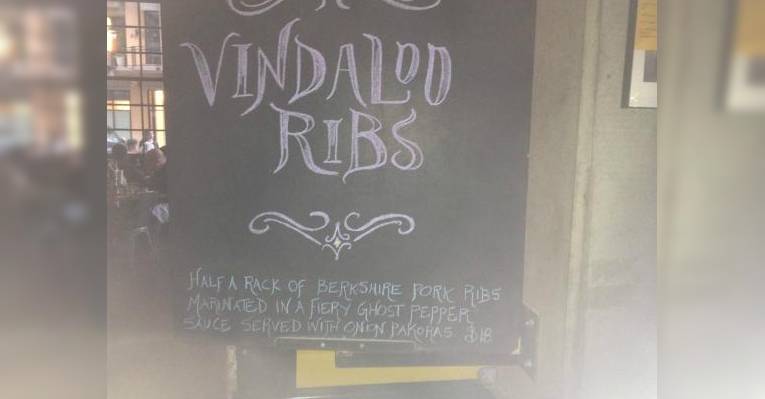 VINDALOO
RIBS
HALF A RACK OF BERKSHIRE PORK RIBS
MARINATED IN A FIERY GHOST PEPPER
SAUCE SERVED WITH ONION PAKORAS $18